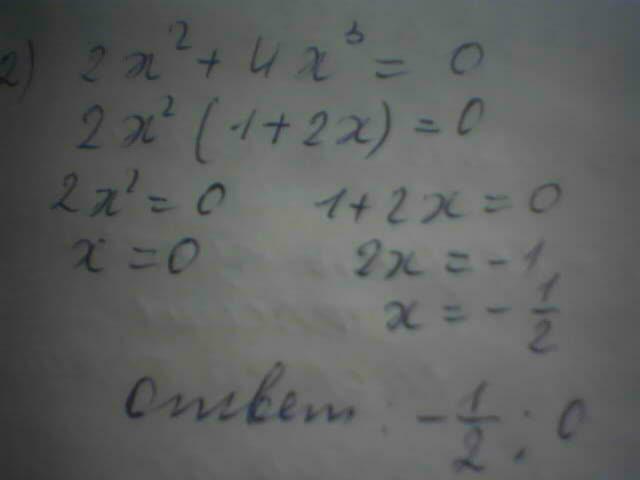 2) 2x² + 4x³ = 0
2x² (1 + 2x) = 0
2x² = 0 1 + 2x = 0
x = 0 2x = -1
x = - 1/2
Ответ: - 1/2 ; 0